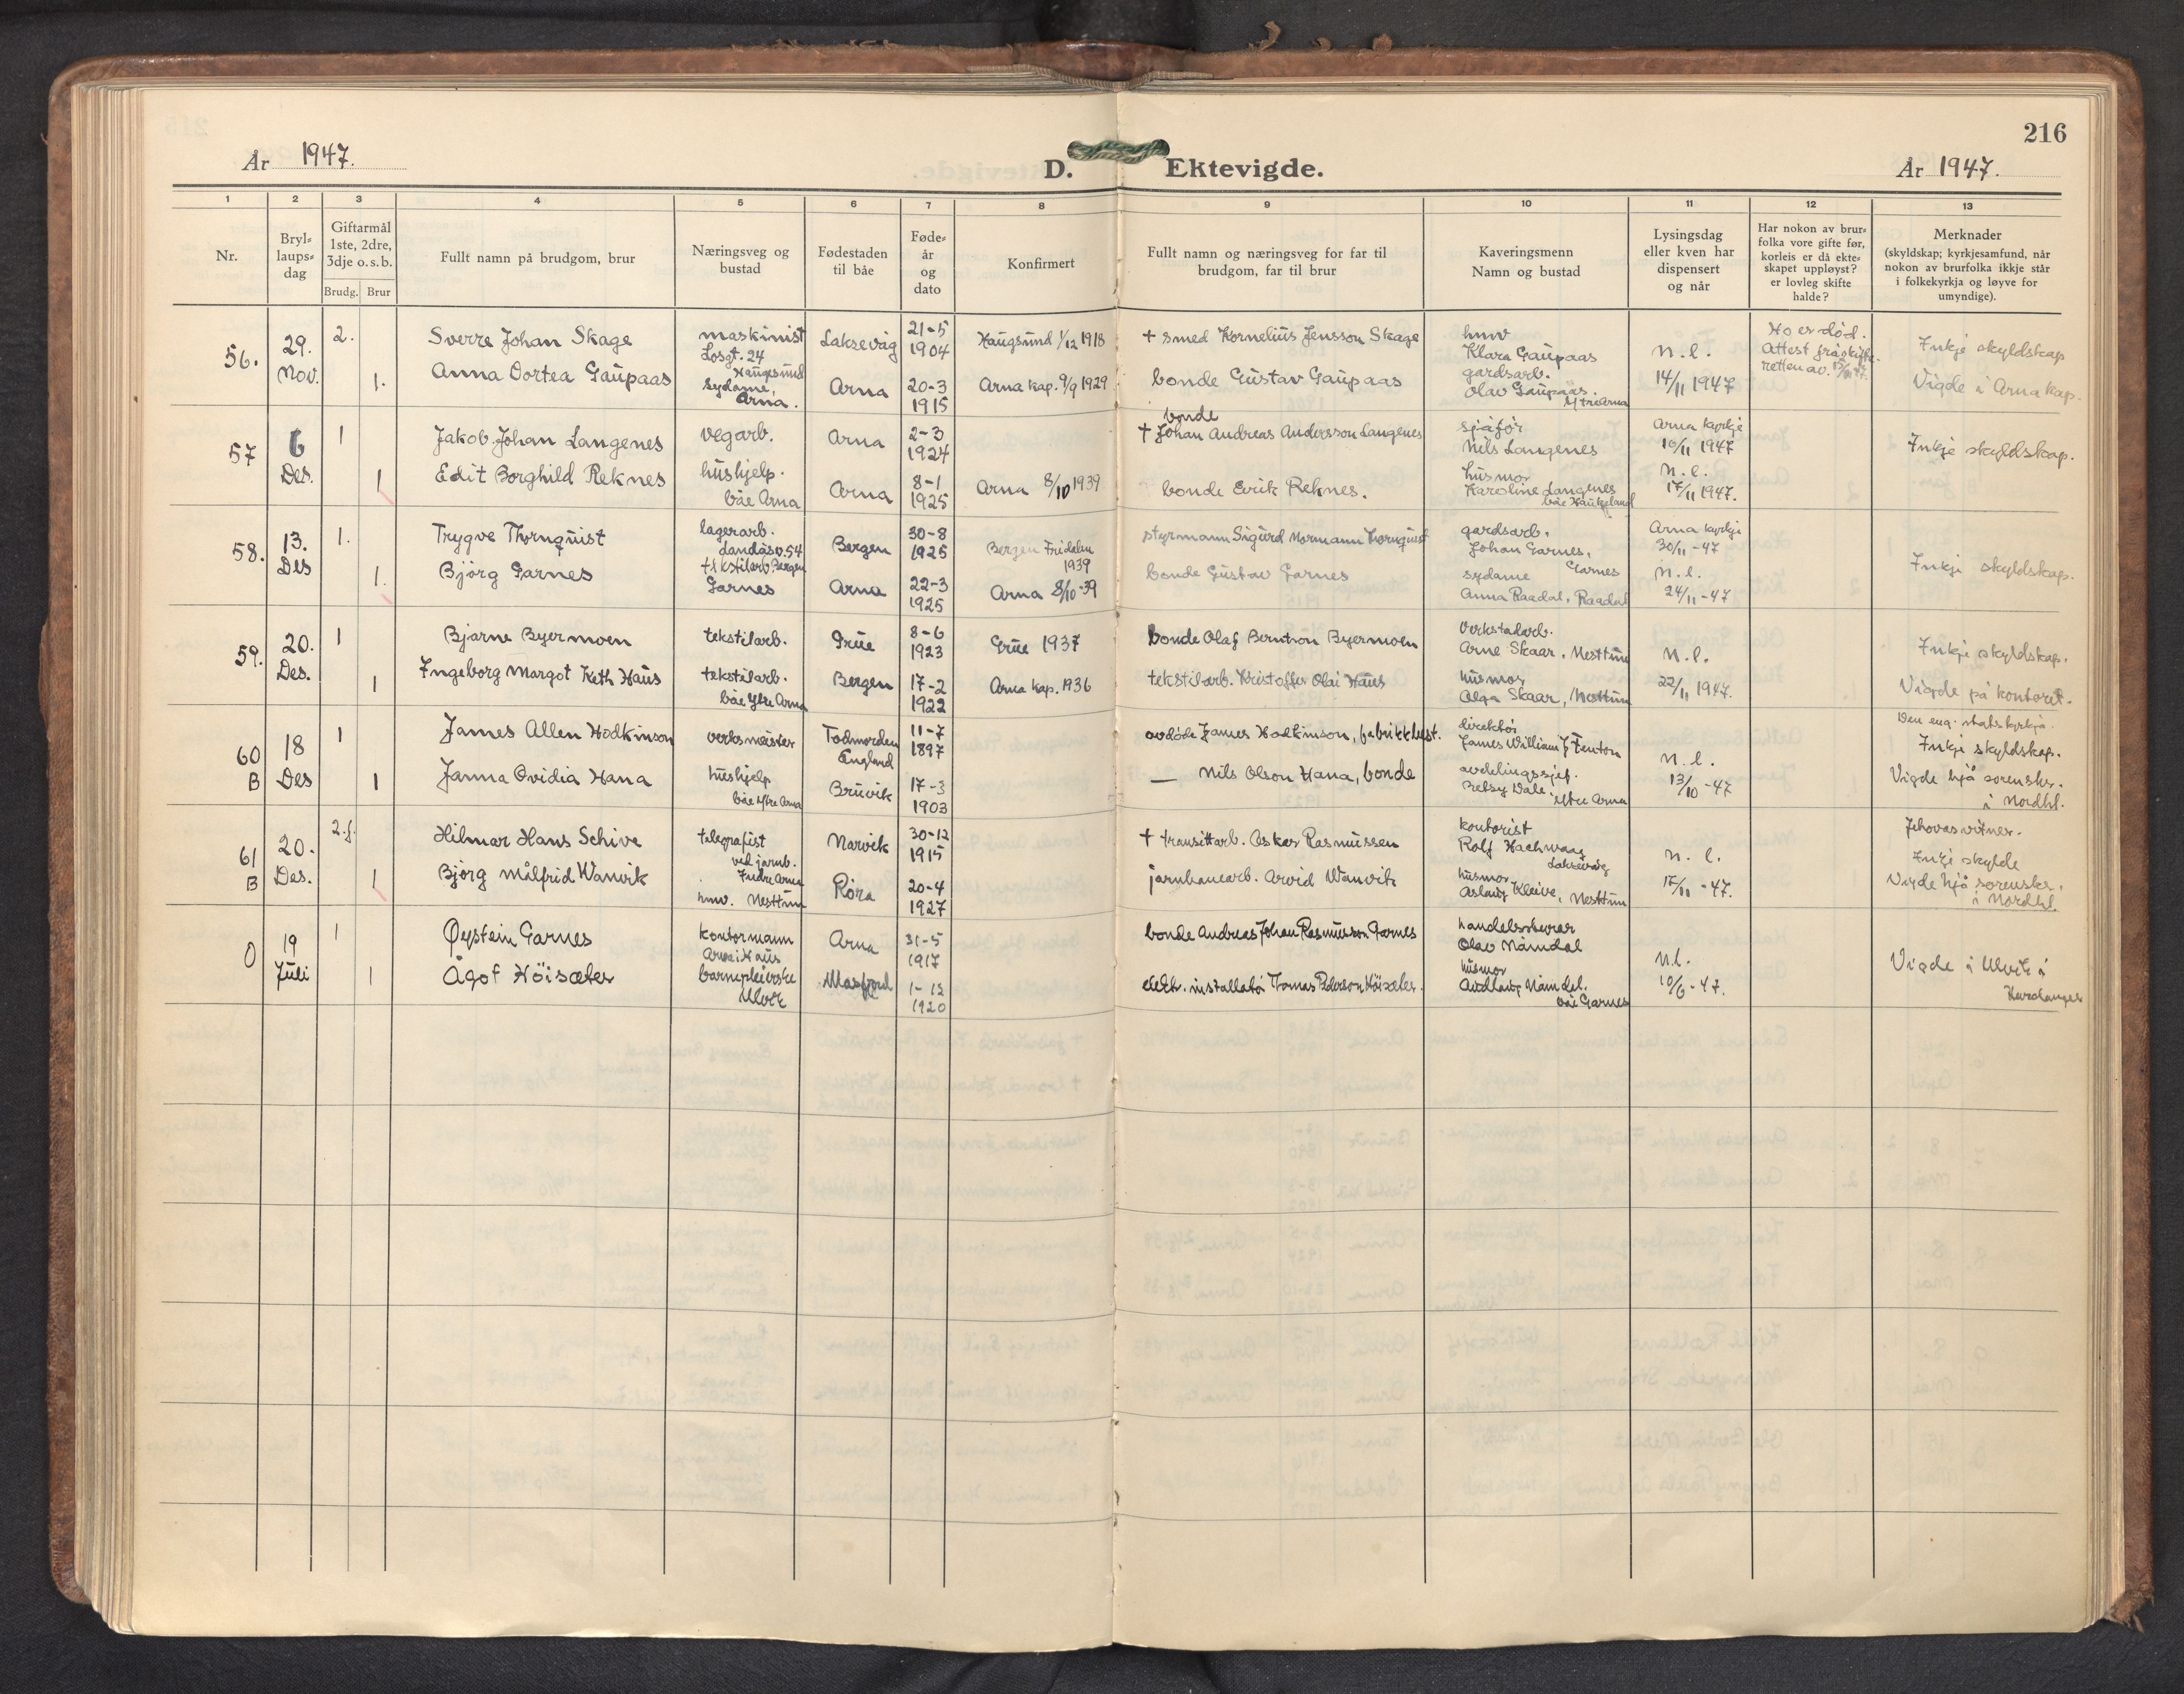 216
År 1947.
D. Ektevigde.
År 1947.
1 2 3 4 5 6 7 8 9 10 11 12 13
Nr.
Bryl-
laups-
dag
Giftarmål
1ste, 2dre,
3dje o.s.b.
Brudg. Brur
Fullt namn på brudgom, brur
Næringsveg og
bustad
Fødestaden
til båe
Føde-
år
og
dato
Konfirmert
Fullt namn og næringsveg for far til
brudgom, far til brur
Kaveringsmenn
Namn og bustad
Lysingsdag
eller kven har
dispensert
og når
Har nokon av brur-
folka vore gifte før,
korleis er då ekte-
skapet uppløyst?
er lovleg skifte
halde?
Merknader
(skyldskap; kyrkjesamfund, når
nokon av brurfolka ikkje står
i folkekyrkja og løyve for
umyndige).
56.
29.
Nov.
2.
1.
Sverre Johan Skage
Anna Dortea Gaupaas
maskinist
Losgt. 24
Haugesund
sydame,
Arna.
Laksevåg
Arna
21-5
1904
20-3
1915
Haugsund 1/12 1918
Arna kap. 9/9 1929
+ smed Kornelius Jensson Skage
bonde Gustav Gaupaas
hmv
Klara Gaupaas
gardsarb.
Olav Gaupaas.
Ytre Arna
n.l.
14/11 1947
Ho er død.
Attest frå skifte-
retten av
Inkje skyldskap
Vigde i Arna kap.
57
6
Des.
1
1
Jakob Johan Langenes
Edit Borghild Reknes
vegarb.
hushjelp.
båe Arna
Arna
Arna
2-3
1924
8-1
1925
Arna 8/10 1939
bonde
+ Johan Andreas Andersson Langenes
bonde Erik Reknes.
sjåfør
Nils Langenes
husmor
Karoline Langenes
båe Haukeland
Arna kyrkje
16/11 1947
n.l.
17/11 1947.
Inkje skyldskap.
58.
13.
Des
1.
1.
Trygve Thornquist
Bjørg Garnes
lagerarb.
Landåsv. 54
tekstilarb. Bergen
Garnes
Bergen
Arna
30-8
1925
22-3
1925
Bergen Fridalen
1939
Arna 8/10-39
styrmann Sigurd Normann Thornquist
bonde Gustav Garnes
gardsarb.
Johan Garnes,
Garnes
sydame
Anna Raadal, Raadal
Arna kyrkje
30/11-47
n.l.
24/11-47
Inkje skyldskap.
59.
20.
Des.
1
1
Bjarne Byermoen
Ingeborg Margot Keth Haus
tekstilarb.
tekstilarb.
båe Ytre Arna
Grue
Bergen
8-6
1923
17-2
1922
Grue 1937
Arna kap. 1936
bonde Olaf Berntson Byermoen
tekstilarb. Kristoffer Olai Haus
Verkstadarb.
Arne Skaar, Nesttun
husmor
Olga Skaar, Nesttun
n.l.
22/11 1947.
Inkje skyldskap.
Vigde på kontoret.
60
B
18
Des
1
1
James Allen Hodkinson
Janna Ovidia Hana
verksmeister
hushjelp
båe Ytre Arna
Todmorden
England
Bruvik
11-7
1897
17-3
1903
avdøde James Hodkinson, fabrikkbest.
— Nils Olson Hana, bonde
direktør
James William J Fenton
avdelingssjef.
Betsy Dale. Ytre Arna
n.l.
13/10-47
Den eng. statskyrkja.
Inkje skyldskap.
Vigde hjå sorenskr.
i Nordhl.
61
B
20.
Des.
2.f.
1
Hilmar Hans Schive
Bjørg Målfrid Wanvik
telegrafist
ved jarnb.
Indre Arna
hmv. Nesttun
Narvik
Røra
30-12
1915
20-4
1927
+ transittarb. Oskar Rasmussen
jarnbanearb. Arvid Wanvik
kontorist
Rolf Hachwaag
Laksevåg
husmor
Aslaug Kleive, Nesttun
n.l.
17/11-47.
Jehovas vitner.
Inkje skylde
Vigde hjå sorenskr.
i Nordhl.
0
19
Juli
1
1
Øystein Garnes
Ågot Höisæter
kontormann
Arna i Haus
barnepleierske
Ulvik
Arna
Masfjord
31-5
1917
1-12
1920
bonde Andreas Johan Rasmusson Garnes
elektr. installatør Tomas Pederson Höisæter.
handelsskurar
Olav Namdal
husmor
Audlaug Namdal.
båe Garnes
n.l.
10/6-47.
Vigde i Ulvik i
Hardanger